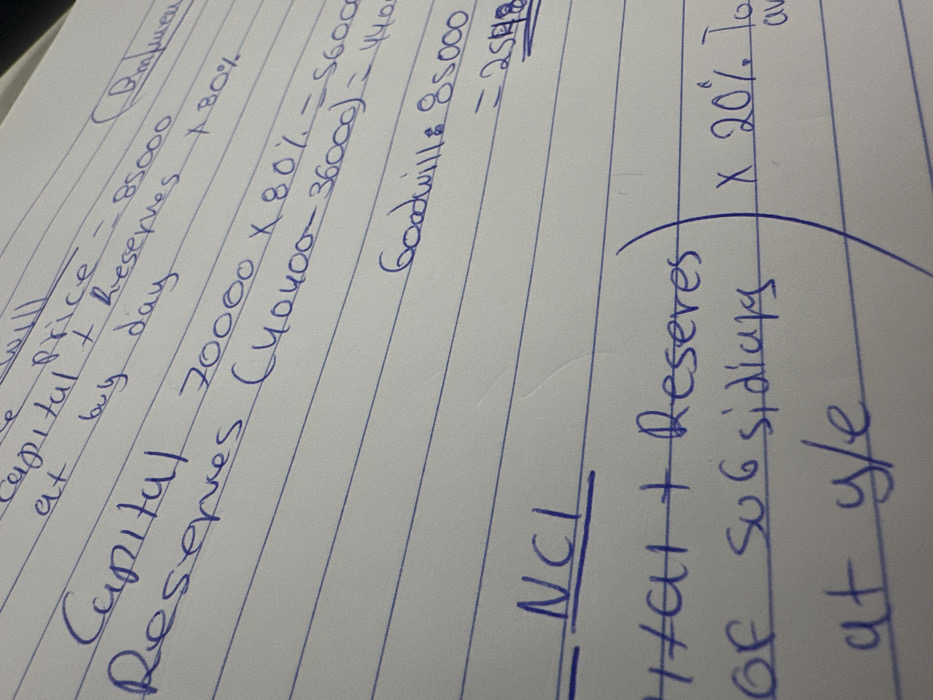 Price = 85000
Capital + Reserves x 80%
at buy day
Capital 70000 x 80% = 56000
Reserves (40400 - 36000) = 440
Goodwill: 85000
= 25
NCI
+ Reseres x 20%. To
of subsidiary
at y/e